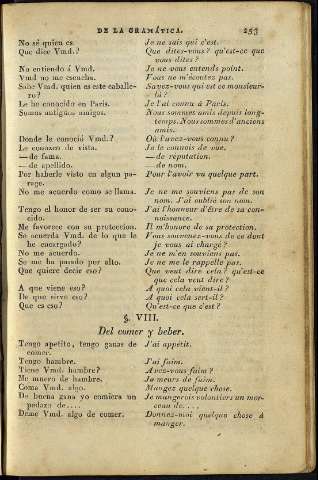 DE LA GRAMÁTICA. 253
No sé quien es. Je ne sais qui c'est.
Que dice Vmd.? Que dites-vous? qu'est-ce que
vous dites?
No entiendo á Vmd. Je ne vous entends point.
Vmd no me escucha. Vous ne m'écoutez pas.
Sabe Vmd. quien es este caballe- Savez-vous qui est ce monsieur-
ro? là?
Le he conocido en Paris. Je l'ai connu à Paris.
Somos antiguos amigos. Nous sommes amis depuis long-
temps. Nous sommes d'anciens
amis.
Donde le conoció Vmd.? Où l'avez-vous connu?
Le conozco de vista. Je le connois de vue.
— de fama. — de réputation.
— de apellido. — de nom.
Por haberle visto en algun pa- Pour l'avoir vu quelque part.
rage.
No me acuerdo como se llama. Je ne me souviens pas de son
nom. J'ai oublié son nom.
Tengo el honor de ser su cono- J'ai l'honneur d'être de sa con-
cido. naissance.
Me favorece con su protection. Il m'honore de sa protection.
Se acuerda Vmd. de lo que le Vous souvenez-vous de ce dont
he encargado? je vous ai chargé?
No me acuerdo. Je ne m'en souviens pas.
Se me ha pasado por alto. Je ne me le rappelle pas.
Que quiere decir eso? Que veut dire cela? Qu'est-ce
que cela veut dire?
A que viene eso? A quoi cela vient-il?
De que sirve eso? A quoi cela sert-il?
Que es eso? Qu'est-ce que c'est?
§. VIII.
Del comer y beber.
Tengo apetito, tengo ganas de J'ai appétit.
comer.
Tengo hambre. J'ai faim.
Tiene Vmd. hambre? Avez-vous faim?
Me muero de hambre. Je meurs de faim.
Coma Vmd. algo. Mangez quelque chose.
De buena gana yo comiera un Je mangerois volontiers un mor-
pedazo de.... ceau de....
Deme Vmd. algo de comer. Donnez-moi quelque chose à
manger.